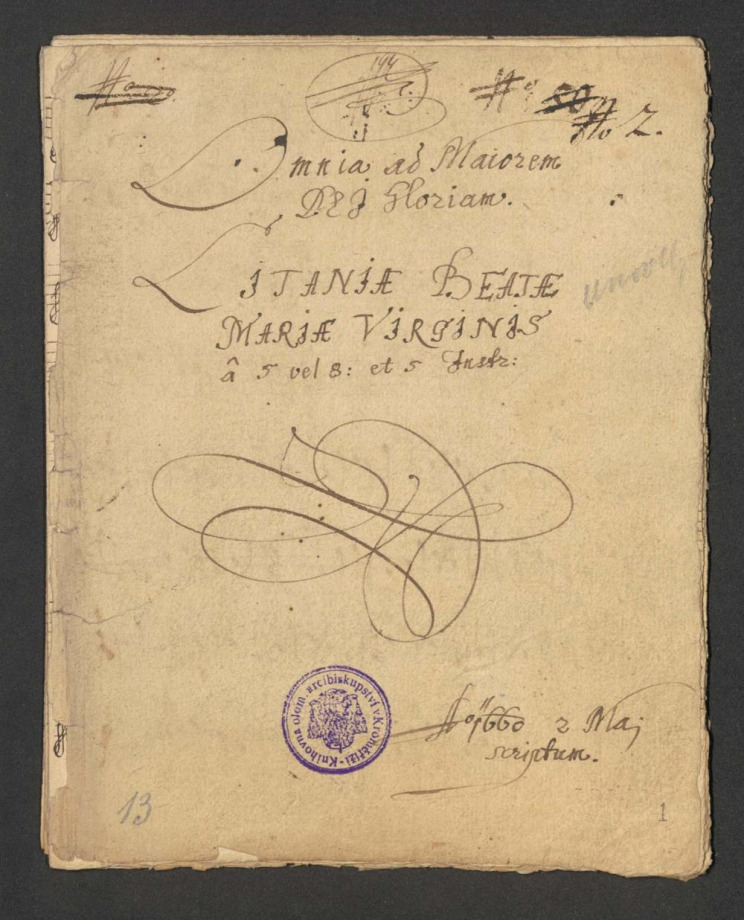 194
No 2.
Omnia ad Maiorem
DEJ Gloriam.
LJTANJÆ BEATÆ
MARJÆ VJRGJNJS
â 5 vel 8: et 5 Instr:
Knihovna olom. arcibiskupství v Kroměříži
Ao 1660 2 Maj
scriptum.
13
1